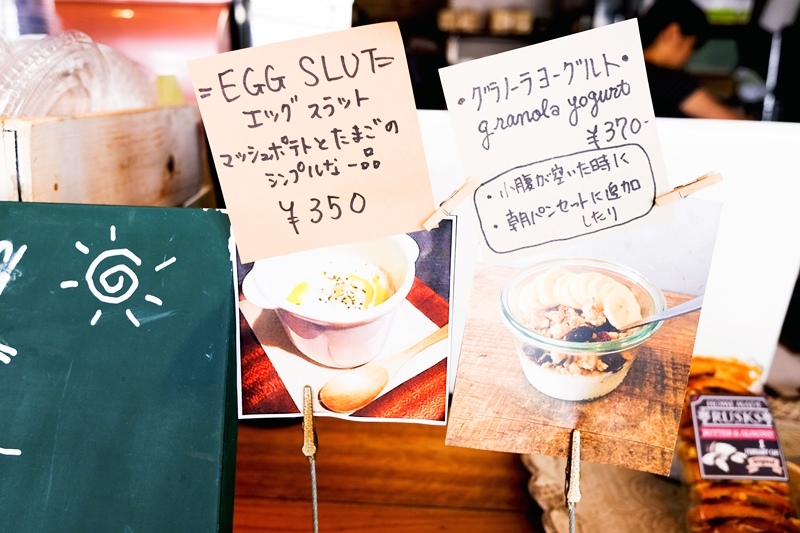 =EGG SLUT=
エッグ スラット
マッシュポテトとたまごの
シンプルな一品
¥350
・グラノーラヨーグルト・
granola yogurt
¥370-
・小腹が空いた時に
・朝パンセットに追加
したり
HOME MADE
RUSKS
BUTTER & ALMOND